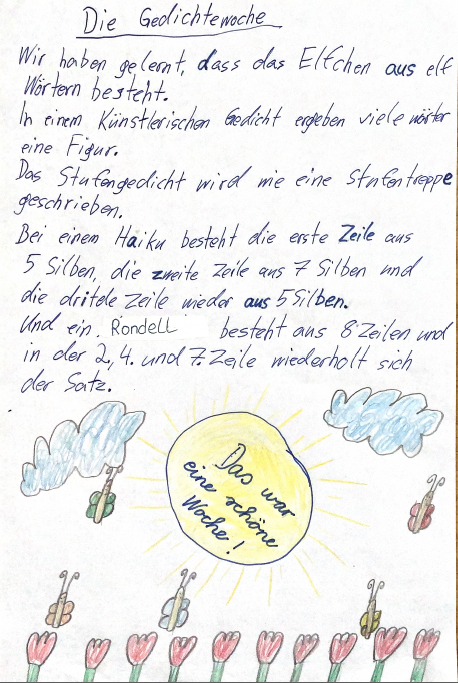 Die Gedichtewoche
Wir haben gelernt, dass das Elfchen aus elf
Wörtern besteht.
In einem Künstlerischen Gedicht ergeben viele wörter
eine Figur.
Das Stufengedicht wird wie eine Stufentreppe
geschrieben.
Bei einem Haiku besteht die erste Zeile aus
5 Silben, die zweite Zeile aus 7 Silben und
die dritde Zeile wieder aus 5 Silben.
Und ein Rondell besteht aus 8 Zeilen und
in der 2, 4. und 7. Zeile wiederholt sich
der Satz.
Das war
eine schöne
Woche!